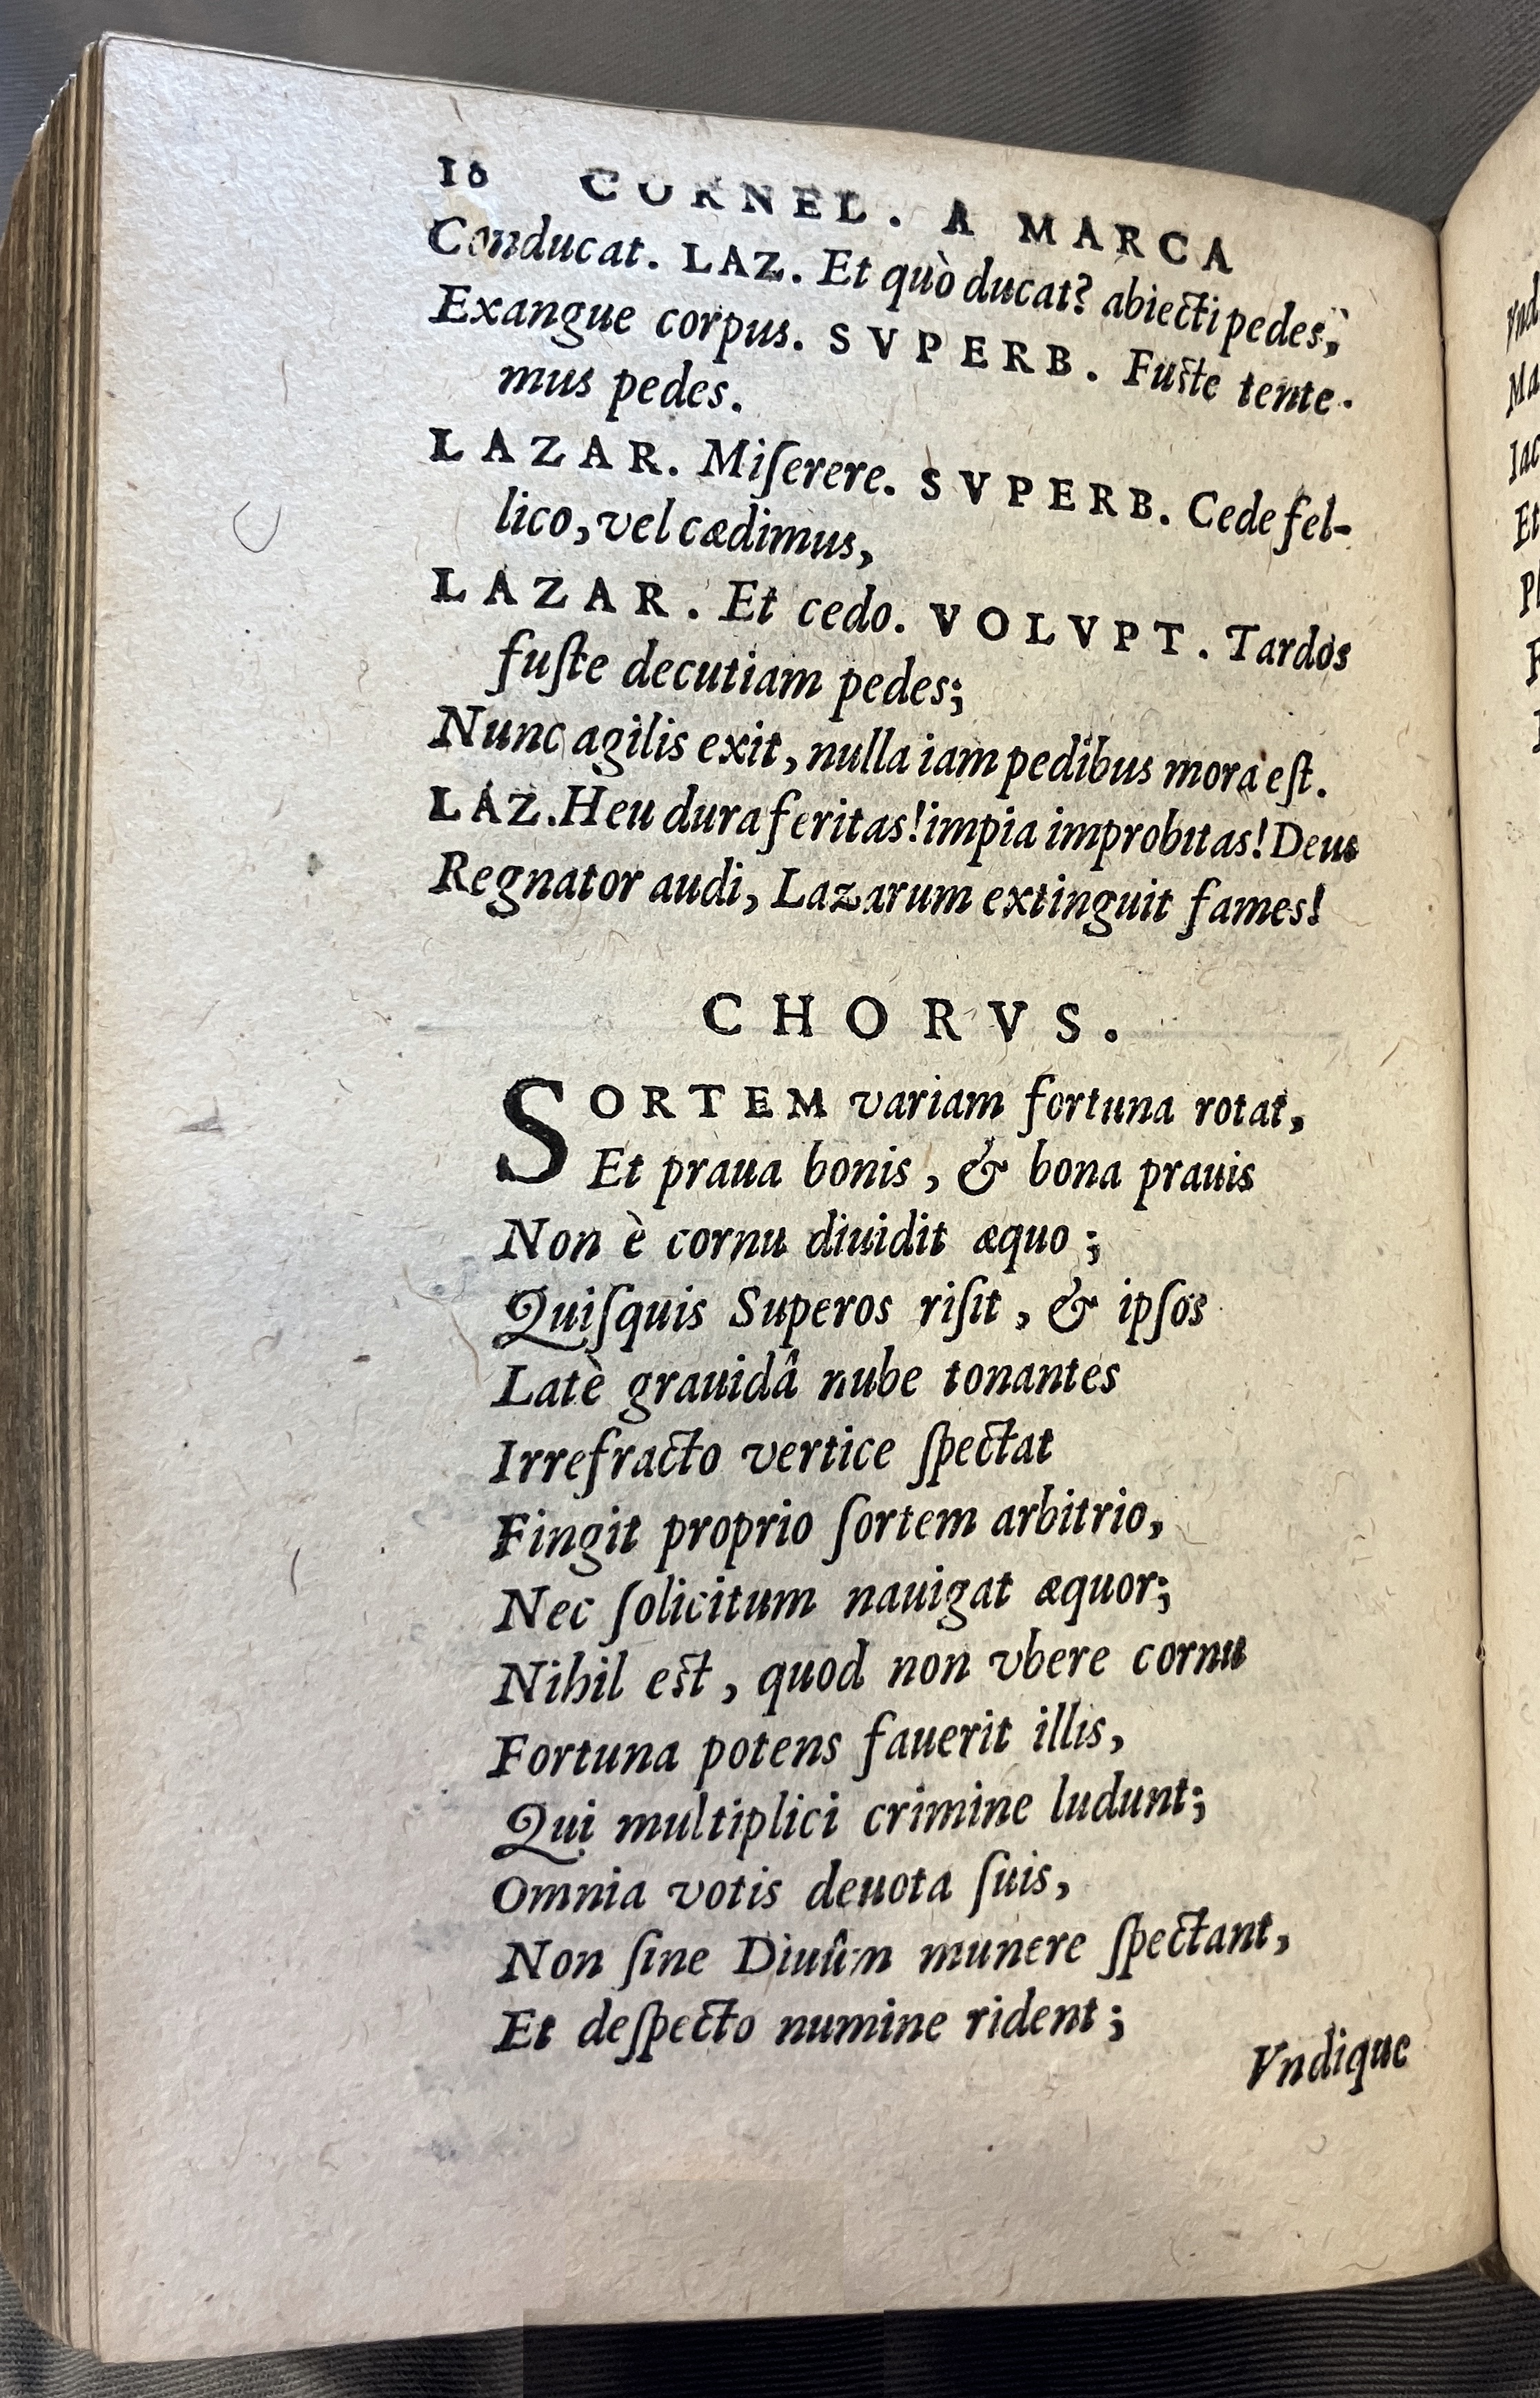 10 CORNEL. A MARCA
Conducat. LAZ. Et quò ducat? abiecti pedes,
Exangue corpus. SVPERB. Fuste tente-
mus pedes.
LAZAR. Miſerere. SVPERB. Cede fel-
lico, vel cædimus,
LAZAR. Et cedo. VOLVPT. Tardos
fuſte decutiam pedes;
Nunc agilis exit, nulla iam pedibus mora eſt.
LAZ. Heu dura feritas! impia improbitas! Deus
Regnator audi, Lazarum extinguit fames!
CHORVS.
SORTEM variam fortuna rotat,
Et praua bonis, & bona prauis
Non è cornu diuidit æquo;
Quiſquis Superos riſit, & ipſos
Latè grauidâ nube tonantes
Irrefracto vertice ſpectat
Fingit proprio ſortem arbitrio,
Nec ſolicitum nauigat æquor;
Nihil est, quod non vbere cornu
Fortuna potens fauerit illis,
Qui multiplici crimine ludunt;
Omnia votis deuota ſuis,
Non ſine Diuûm munere ſpectant,
Et deſpecto numine rident;
Vndique
Vnd
Ma
Iac
Et
Pl